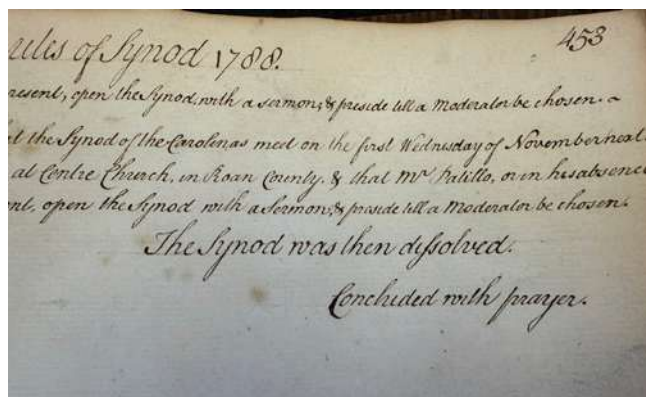 453
nutes of Synod 1788.
resent, open the Synod with a sermon, & preside till a Moderator be chosen.
at the Synod of the Carolinas meet on the first Wednesday of November next
at Centre Church, in Roan County. & that Mr Patillo, or in his absence
ent, open the Synod with a Sermon, & preside till a Moderator be chosen.
The Synod was then dissolved.
Concluded with prayer.